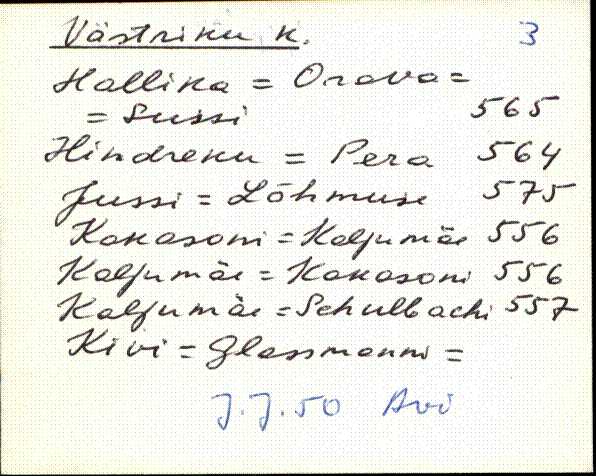 Västriku k. 3
Hallika = Orava =
= Sussi 565
Hindreku = Pera 564
Jussi = Lõhmuse 575
Kokasoni = Kaljumäe 556
Kaljumäe = Kokasoni 556
Kaljumäe = Schulbachi 557
Kivi = Glassmanni =
J.J.50 Avi